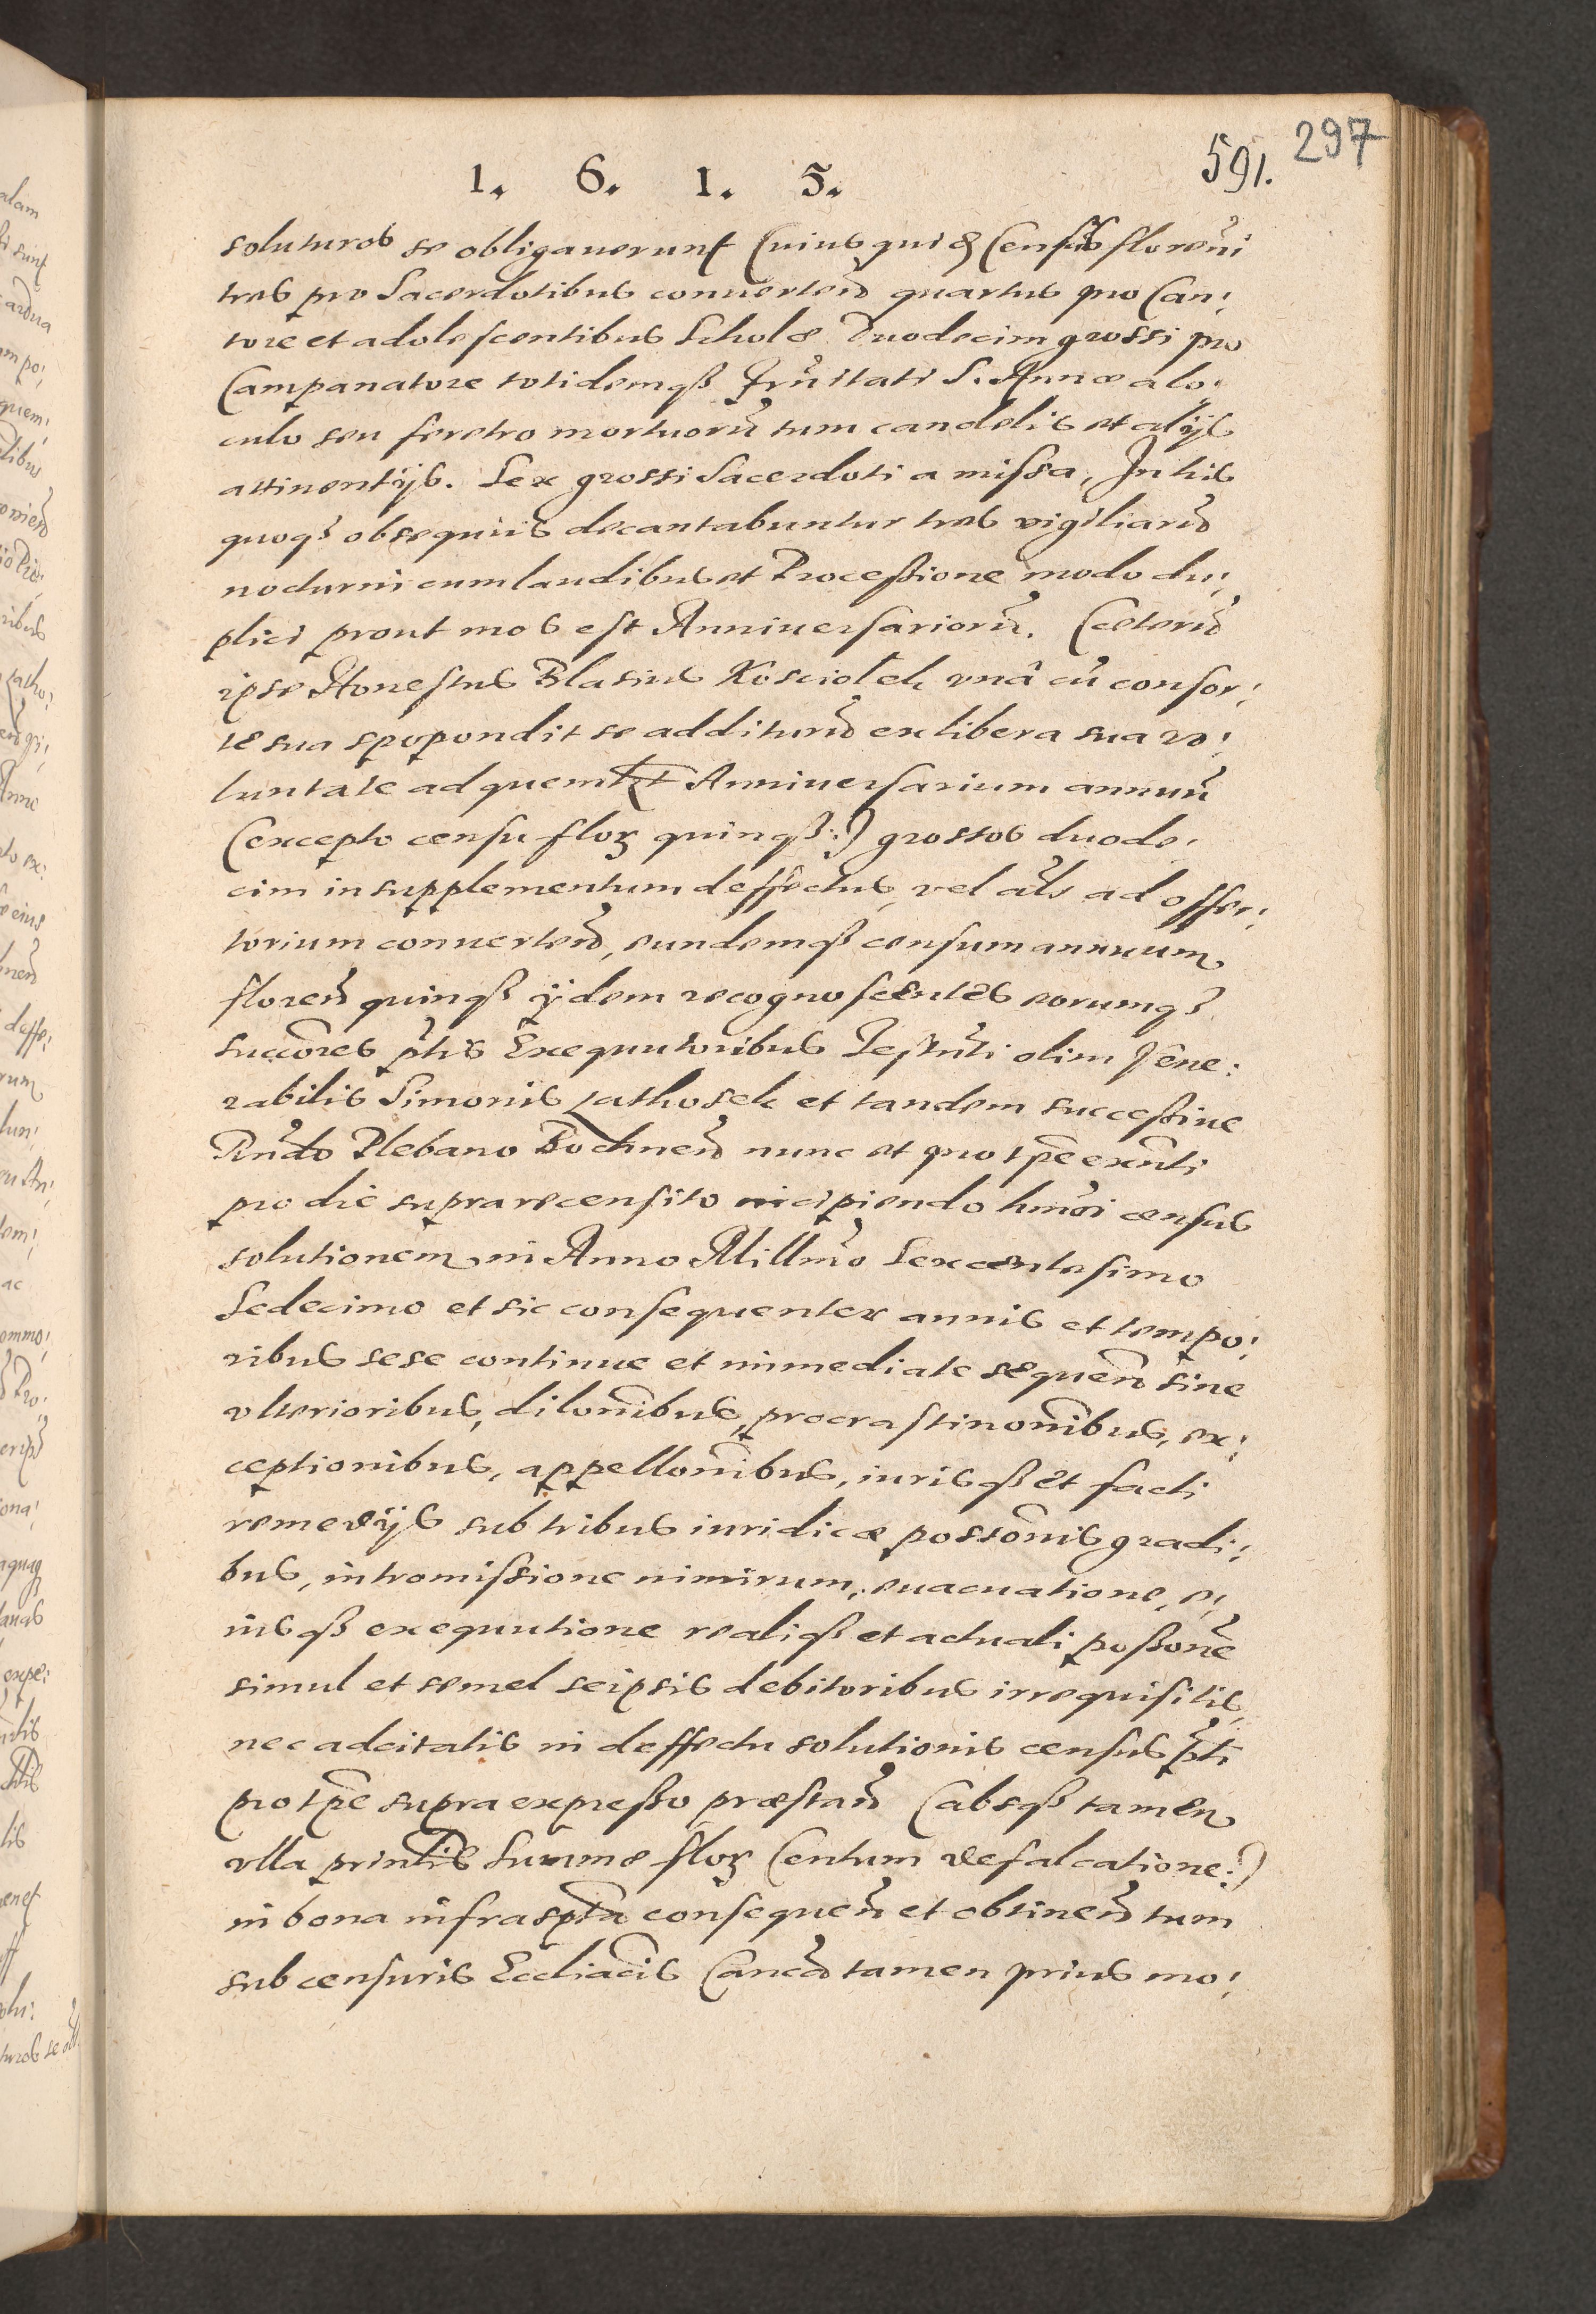 297
591.
1. 6. 1. 5.
soluturos se obligauerunt Cuius quid Census floreni
tres pro Sacerdotibus conuerteñ quartus pro Can:
tore et adolescentibus Scholæ Duodecim grossi pro
Campanatore totidemqȝ Frñitati S. Annæ a lo:
culo seu feretro mortuorũ tum candelis et alijs
attinentijs. Sex grossi Sacerdoti a missa, In his
quoqȝ obsequiis decantabuntur tres vigiliarũ
nocturni cum laudibus et Processione modo du:
plici prout mos est Anniuersariorũ. Cæterũ
ipse Honestus Blasius Kosciołek vnâ cũ consor:
te sua spopondit se additurũ ex libera sua vo:
luntate ad quemlibet Anniuersarium annuũ
(excepto censu floȝ quinqȝ:) grossos duode:
cim in supplementum deffectus, vel als ad offer:
torium conuerteñ, eundemqȝ censum annuum
floreñ quinqȝ ijdem recognoscentes eorumqȝ
succõres p̃tis Exequutoribus Testm̃ti olim Vene:
rabilis Simonis Zathosek et tandem successiue
Rñdo Plebano Bochneñ nunc et pro tp̃e exñti
pro die suprarecensito incipiendo hmõi census
solutionem in Anno Millmo Sexcentesimo
Sedecimo et sic consequenter annis et tempo:
ribus sese continue et immediate sequeñ sine
vlterioribus, dilonibus, procrastinonibus, ex:
ceptionibus, appellonibus, iurisqȝ et facti
remedijs sub tribus iuridicæ possonis gradi:
bus, intromissione nimirum, euacuatione, e:
iusqȝ exequutione realiqȝ et actuali possone
simul et semel seipsis debitoribus irrequisitis,
nec adcitatis in deffectu solutionis census p̃ti
pro tp̃e supra expresso præstañ (absqȝ tamen
vlla prin̄lis summæ floȝ Centum defalcatione:)
in bona infrasp̃ta consequeñ et obtineñ tum
sub censuris Eccliacis Cancẽ tamen prius mo: